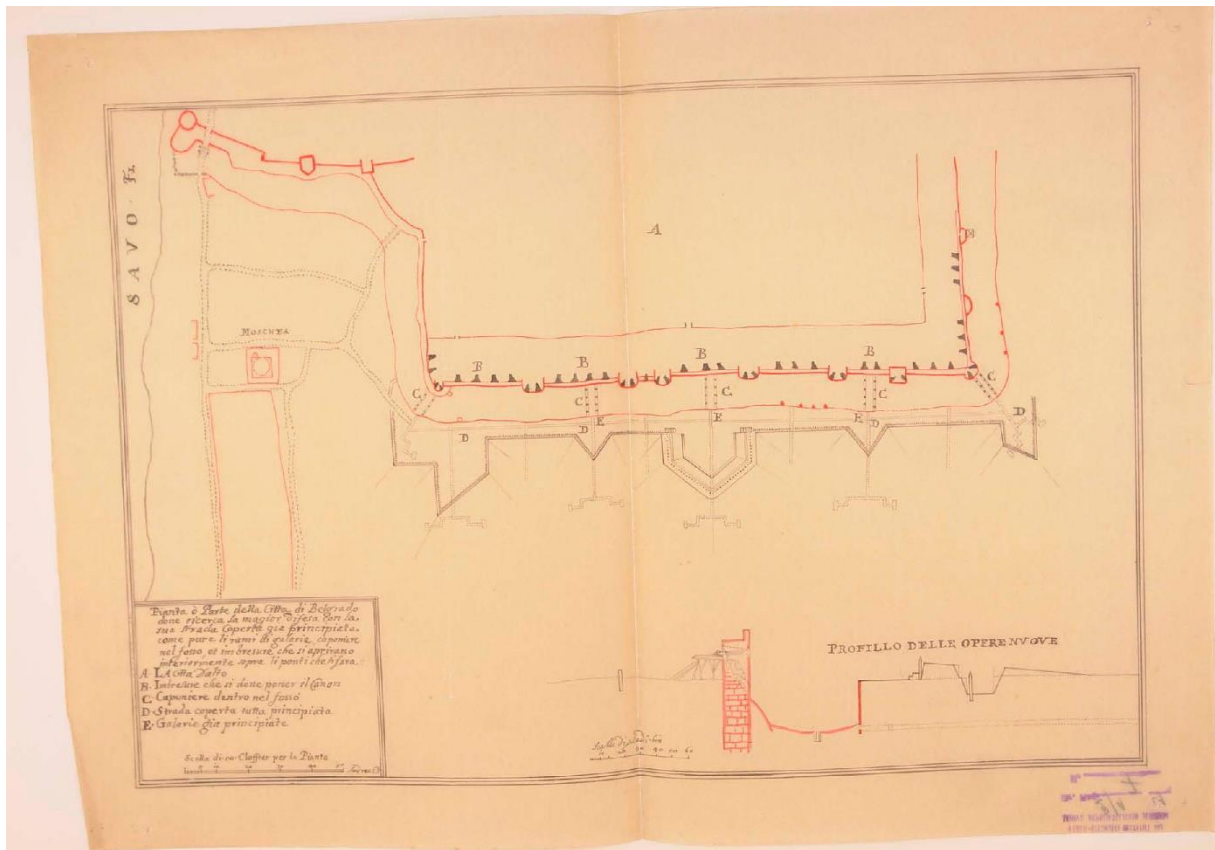 SAVO · Fi.
A
MOSCHEA
B
B
B
B
B
C
C
C
C
C
D
D
D
D
E
E
E
Pianta ò Parte della Citta di Belgrado
doue ricerca la magior difesa con la
sua strada coperta già principiata
come pure li rami di galarie, caponiere
nel fosso, et imbresure che si aprirano
interiormente sopra li ponti che
A. LA Citta D'alto
B. Imbresure che si deue poner il Canon
C. Caponiere dentro nel fosso
D. Strada coperta tutta principiata
E. Galarie già principiate
Scalla di Claffter per la Pianta
PROFILLO DELLE OPERE NVOVE